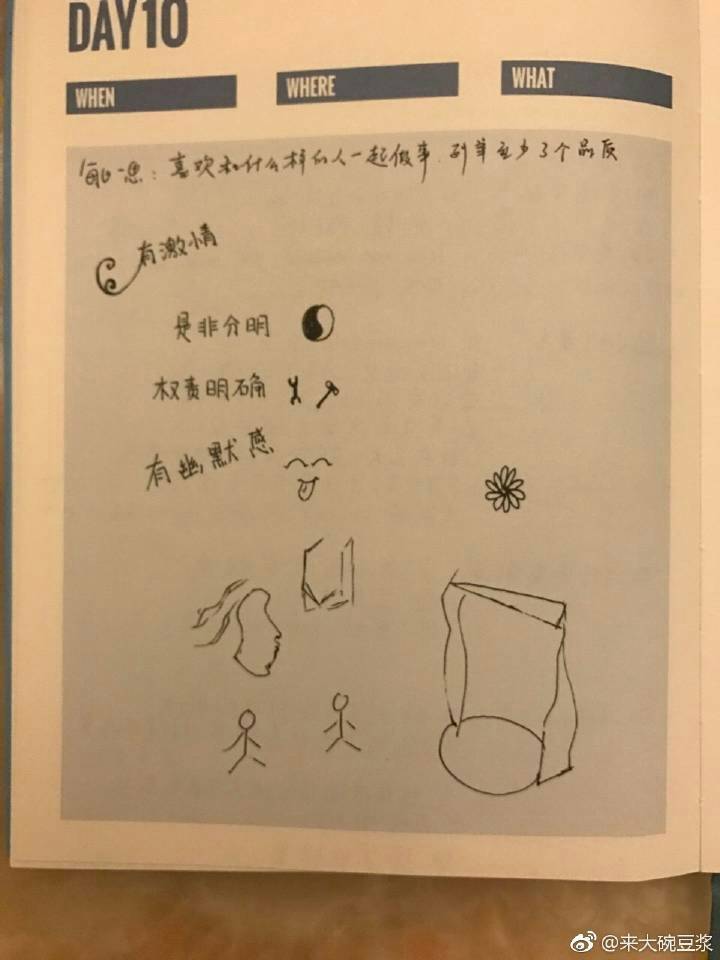 DAY10
WHEN WHERE WHAT
每日一思：喜欢和什么样的人一起做事.列举至少3个品质
有激情
是非分明
权责明确
有幽默感
@来大碗豆浆